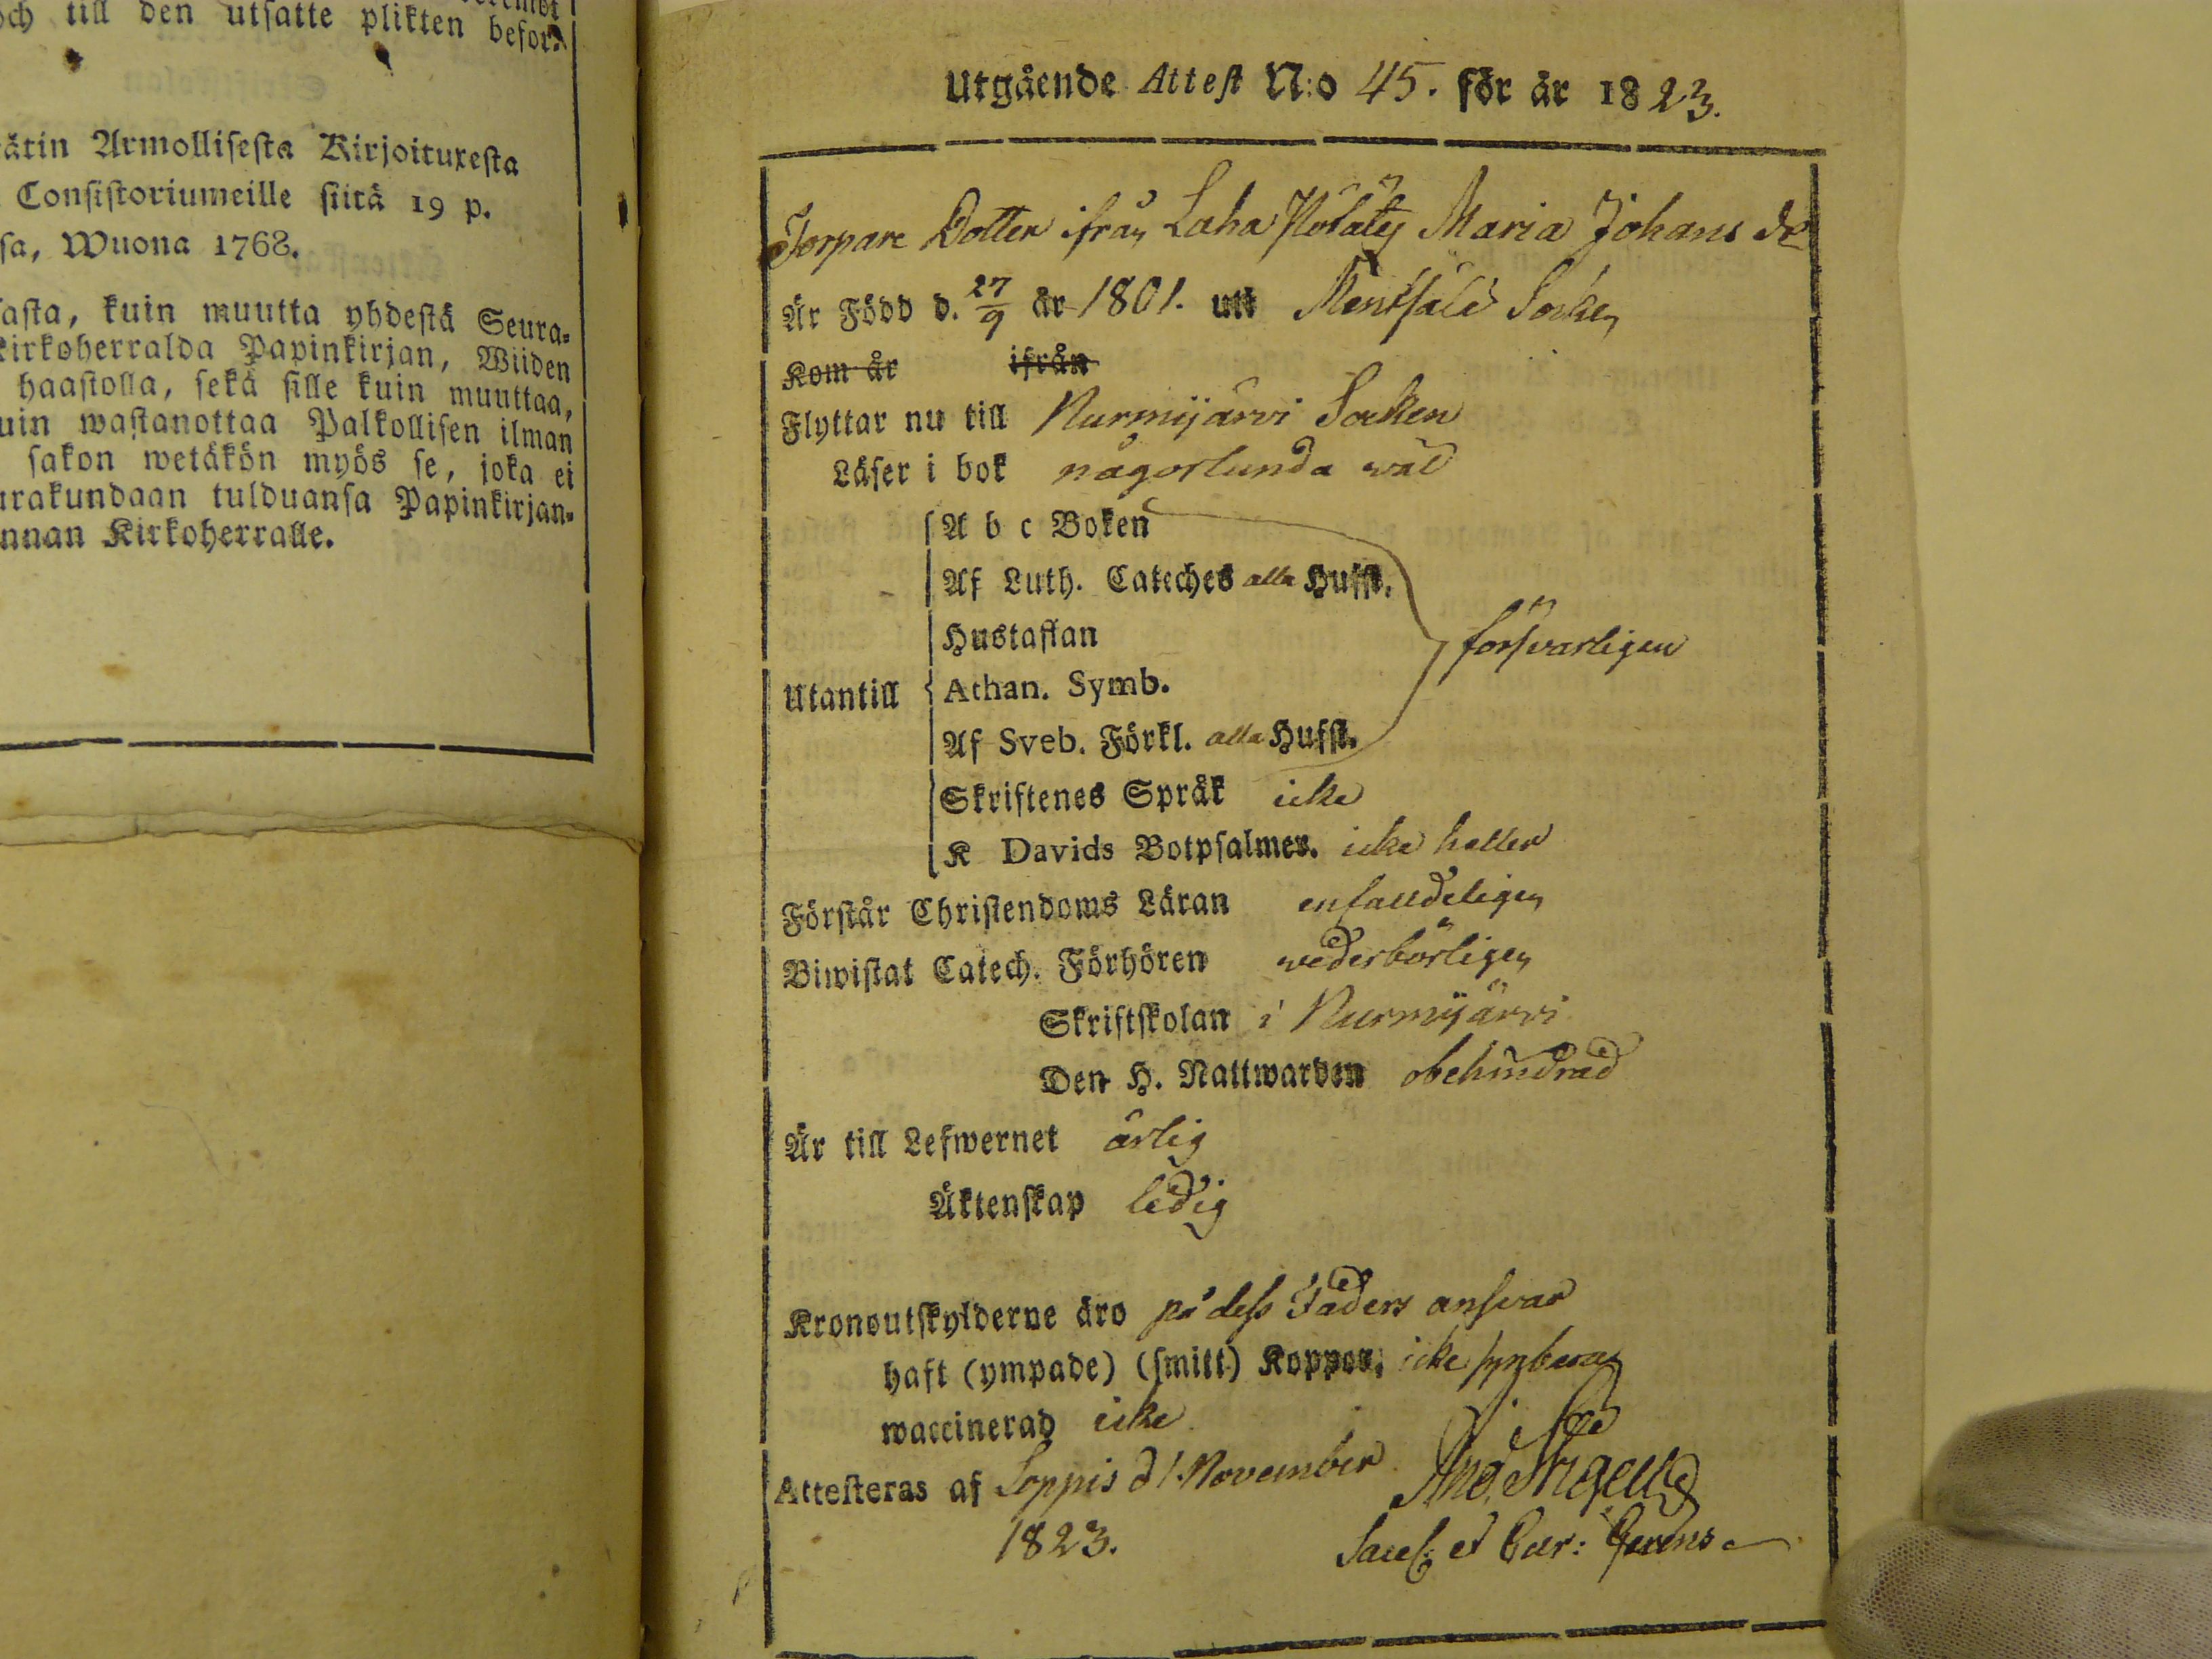 och till den utsatte plikten befor-
ätin Armollisesta Kirjoituxesta
Consistoriumeille siitä 19 p.
sa, Wuona 1768.
asta, kuin muutta yhdestä Seura-
kirkoherralda Papinkirjan, Wiiden
haastolla, sekä sille kuin muuttaa,
uin wastanottaa Palkollisen ilman
sakon wetäkön myös se, joka ei
urakundaan tulduansa Papinkirjan-
nnan Kirkoherralle.
Utgående Attest N:o 45. för år 1823.
Torpare Dotter ifrån Laha Maria Johans dr
Är Född d. 27/9 år 1801. uti Mentsälä Socken
Kom år ifrån
Flyttar nu till Nurmijärvi Socken
Läser i bok någorlunda wäl
A b c Boken
Af Luth. Cateches alla Hufst.
Hustaflan
försvarligen
Utantill Athan. Symb.
Af Sveb. Förkl. alla Hufst.
Skriftenes Språk icke
K Davids Botpsalmer. icke heller
Förstår Christendoms Läran enfaldeligen
Biwistat Catech. Förhören wederbörligen
Skriftskolan i Nurmijärvi
Den H. Nattwarden obehindrad
Är till Lefwernet ärlig
Äktenskap ledig
Kronoutskylderne äro på dess Faders answar
haft (ympade) (smitt) Koppor, icke
waccinerad icke
Attesteras af Loppis d 1 November
1823.
Sacell: et Cur: Gerens